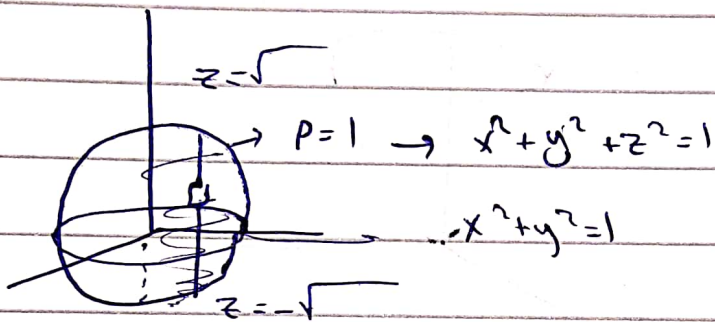 z=√
ρ=1 → x²+y²+z²=1
x²+y²=1
z=-√